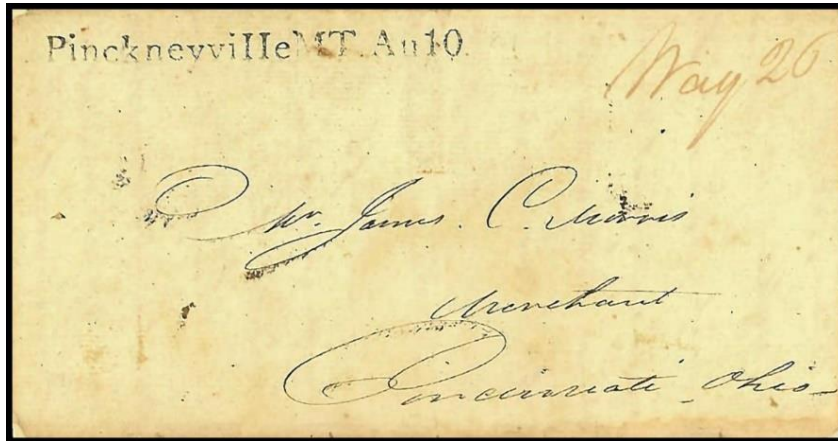 Pinckneyville MT. Au 10.
Way 26
Mr. James. C. Morris
Merchant
Cincinnati Ohio